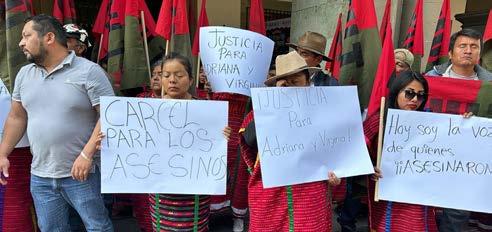 JUSTICIA
para
ADRIANA y
VIRGINIA
CARCEL
PARA LOS
ASESINOS
JUSTICIA
Para
Adriana y Virginia!
Hoy soy la voz
de quienes
¡¡ASESINARON